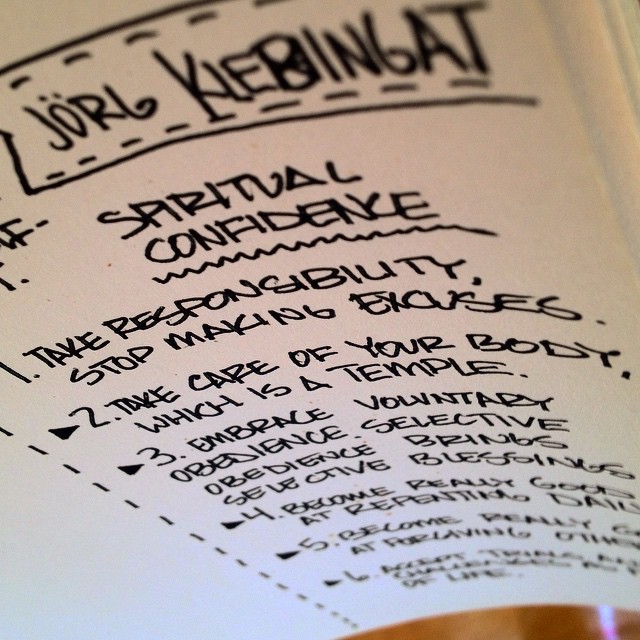 JÖRG KLEBINGAT
SPIRITUAL
CONFIDENCE
1. TAKE RESPONSIBILITY,
STOP MAKING EXCUSES.
2. TAKE CARE OF YOUR BODY,
WHICH IS A TEMPLE.
3. EMBRACE VOLUNTARY
OBEDIENCE. SELECTIVE
OBEDIENCE BRINGS
SELECTIVE BLESSINGS
4. BECOME REALLY GOOD
AT REPENTING DAILY
5. BECOME REALLY
AT FORGIVING OTHERS
6. ACCEPT TRIALS
OF LIFE.